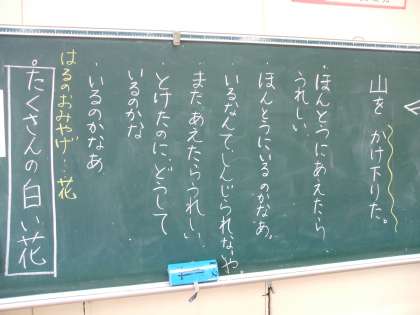 山を かけ下りた。
・ほんとうにあえたら、
うれしい
・ほんとうにいるのかなあ。
・いるなんて、しんじられないや。
・またあえたらうれしい。
・とけたのに、どうして
いるのかな
・いるのかなあ
はるのおみやげ…花
。たくさんの白い花